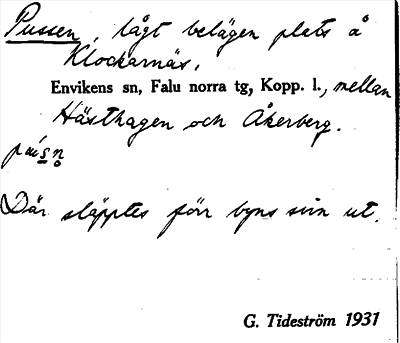 Pussen, lågt belägen plats å
Klockarnäs,
Envikens sn, Falu norra tg, Kopp. l., mellan
Hästhagen och Åkerberg.
Där släpptes förr byns svin ut.
G. Tideström 1931